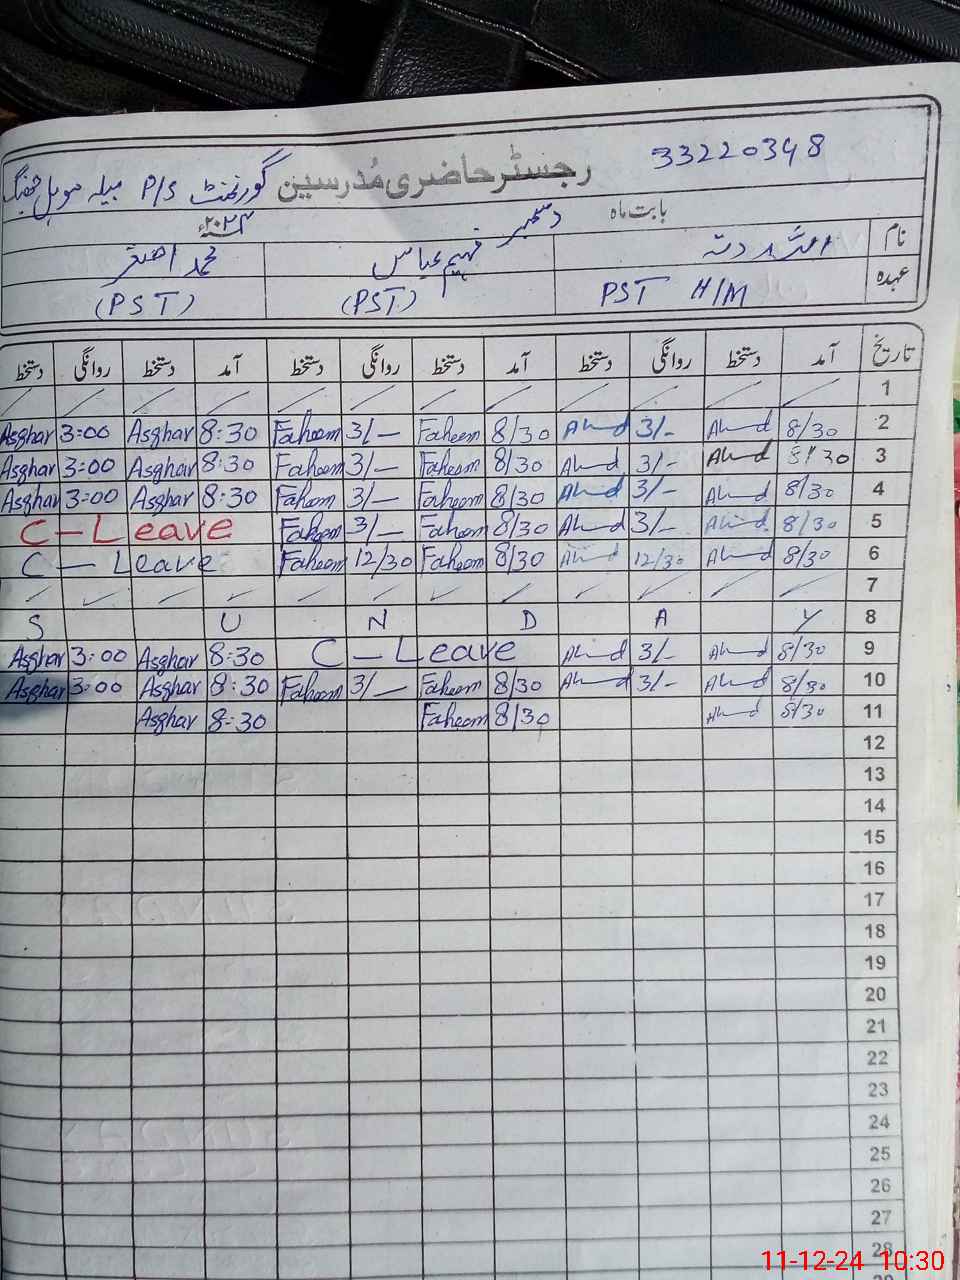 33220348 رجسٹر حاضری مُدرسین گورنمنٹ P/S بیلہ موہل جھنگ
بابت ماہ دسمبر ۲۰۲۴ء
نام اللہ دتہ فہیم عباس محمد اصغر
عہدہ PST H/M (PST) (PST)
تاریخ آمد دستخط روانگی دستخط آمد دستخط روانگی دستخط آمد دستخط روانگی دستخط
1
Asghar 3:00 Asghar 8:30 Faheem 3/- Faheem 8/30 3/- 8/30 2
Asghar 3:00 Asghar 8:30 Faheem 3/- Faheem 8/30 3/- 8/30 3
Asghar 3:00 Asghar 8:30 Faheem 3/- Faheem 8/30 3/- 8/30 4
C-Leave Faheem 3/- Faheem 8/30 3/- 8/30 5
C-Leave Faheem 12/30 Faheem 8/30 12/30 8/30 6
7
S U N D A Y 8
Asghar 3:00 Asghar 8:30 C-Leave 3/- 8/30 9
Asghar 3:00 Asghar 8:30 Faheem 3/- Faheem 8/30 3/- 8/30 10
Asghar 8:30 Faheem 8/30 8/30 11
12
13
14
15
16
17
18
19
20
21
22
23
24
25
26
27
28
11-12-24 10:30